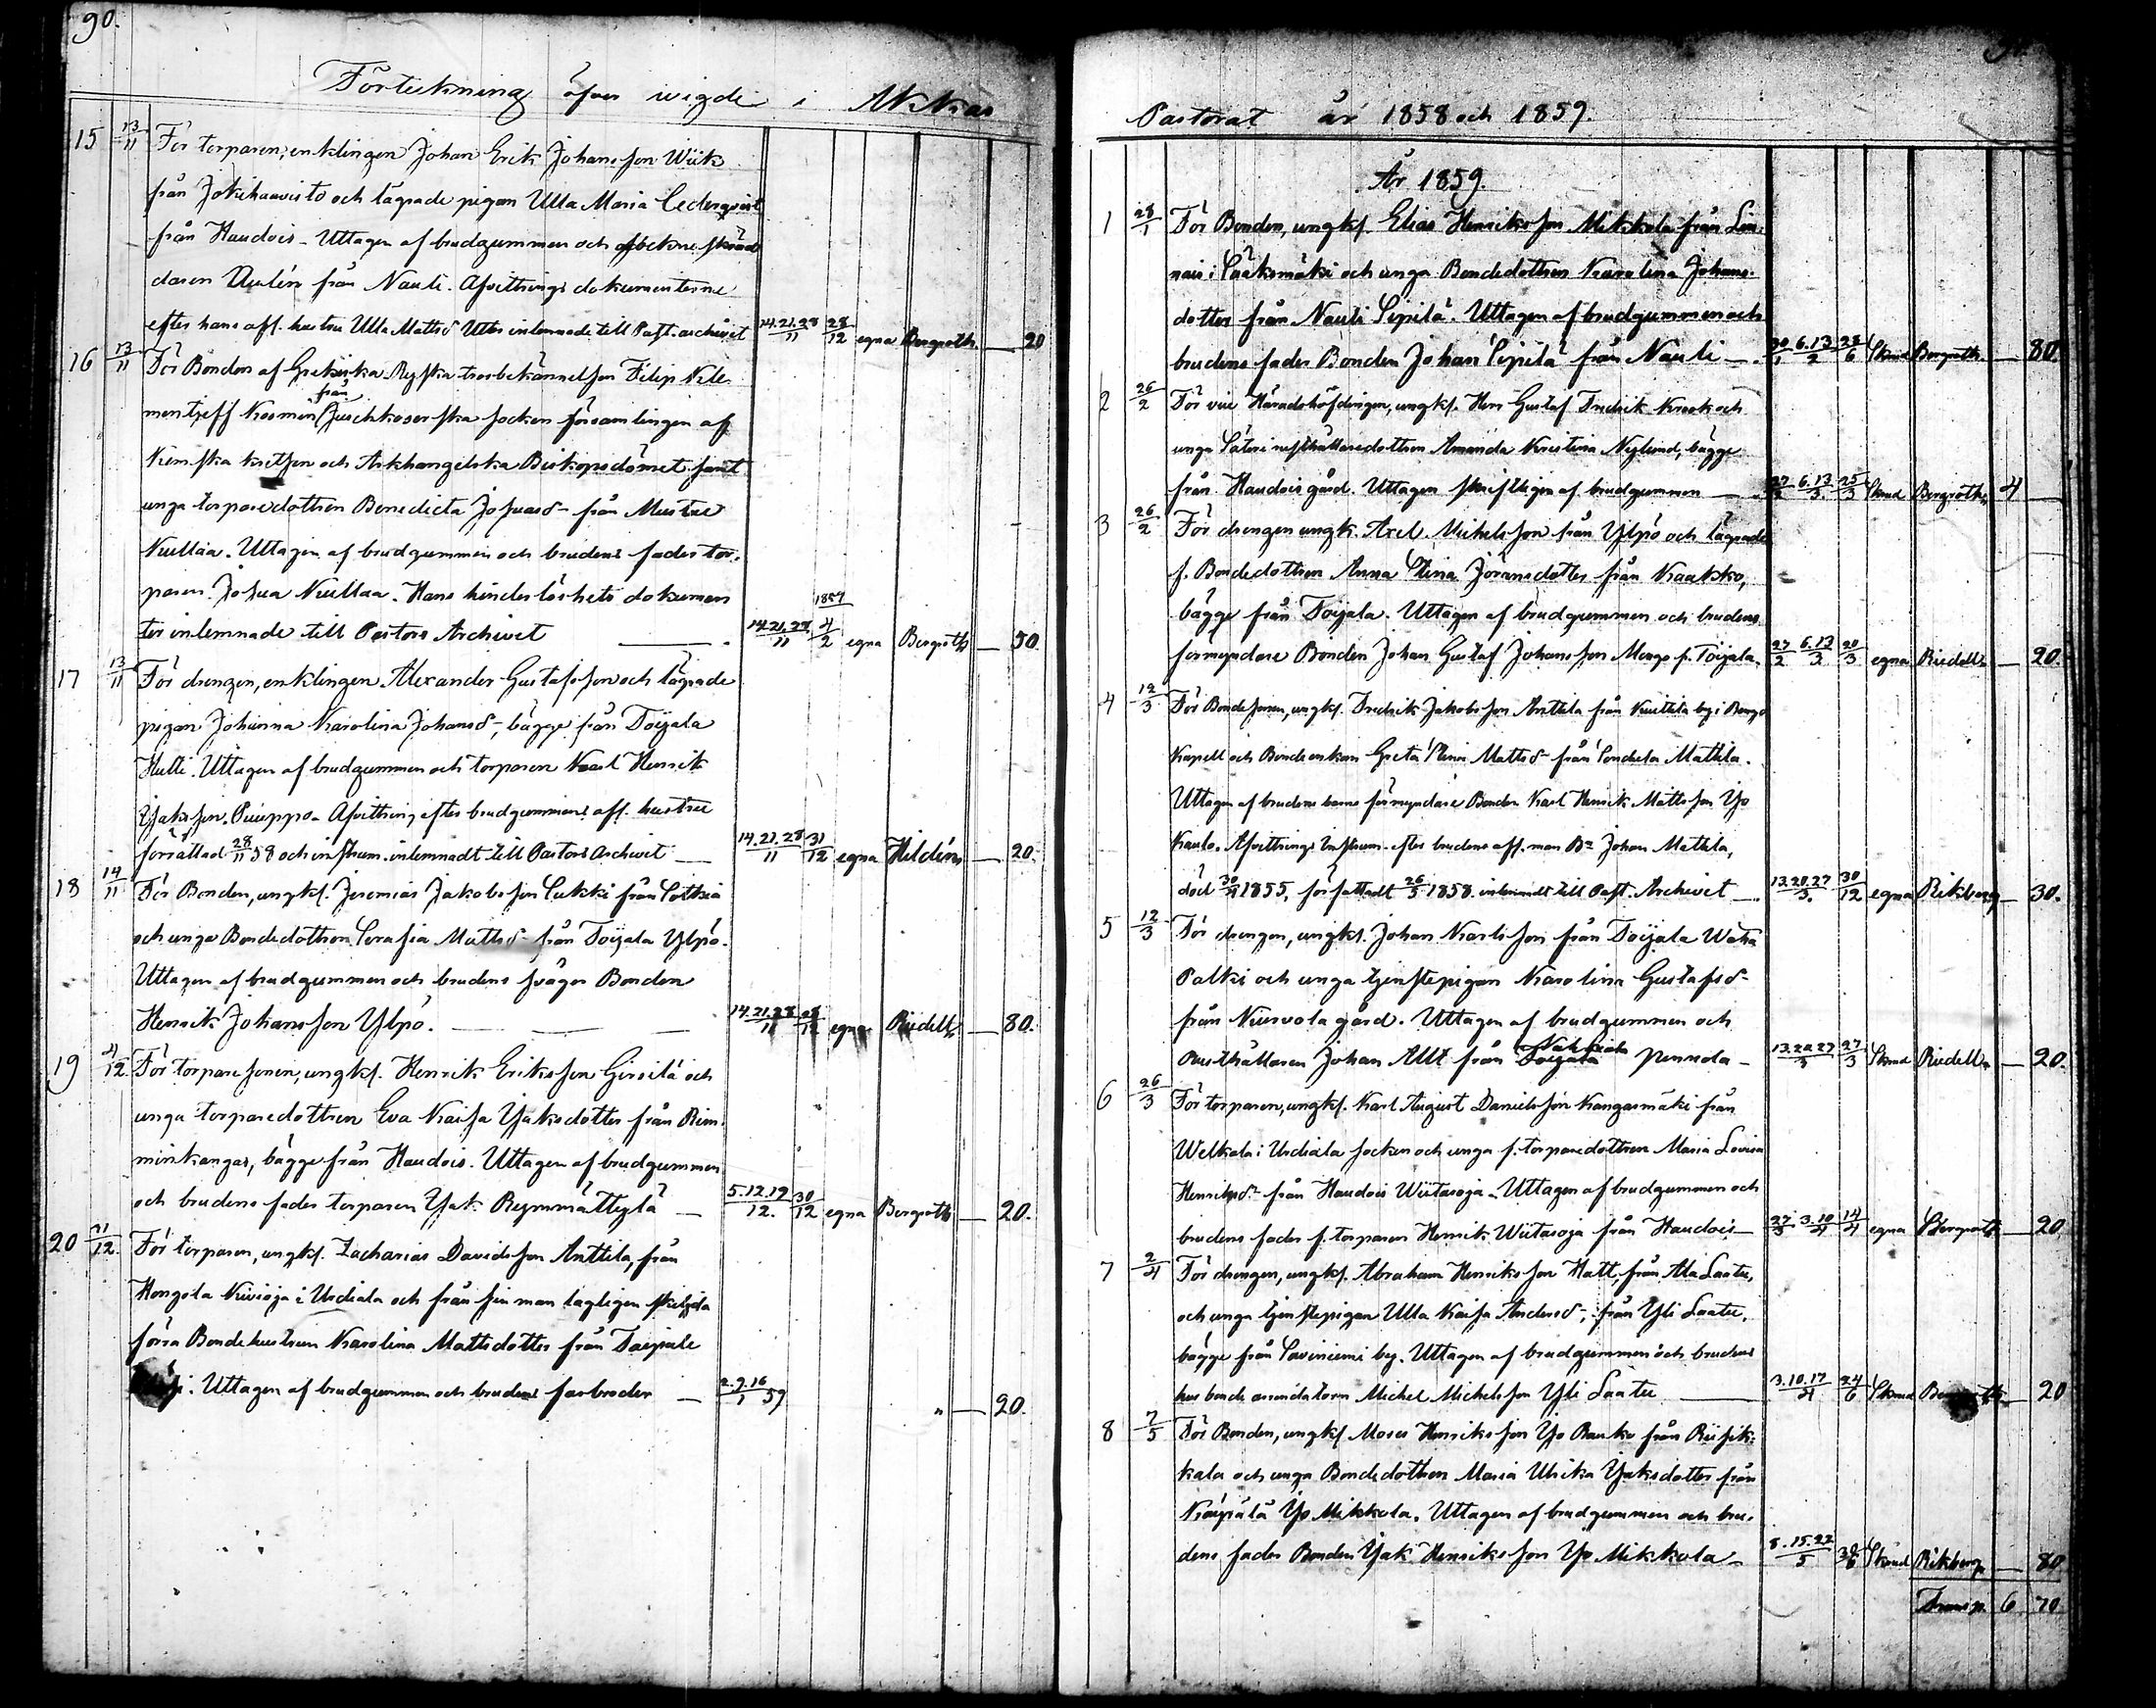 90.
Förteckning öfver wigde i Akkas
15 13/11 För torparen, enklingen Johan Erik Johansson Wiik
från Jokihaavisto och lägrade pigan Ulla Maria Cederqvist
från Haudois - Uttagen af brudgummen och
daren från Nauli. Afvittrings dokumenterne
efter hans afl. hustru Ulla Mattsd inlemnade till Past. archivet 14.21.28/11 28/12 egna Bergroth — 20
16 13/11 För Bonden af Grekiska Ryska trosbekännelsen Filip Kle-
mentjeff Kosmin från socken församlingen af
Kemska kretsen och Arkhangelska Biskopsdömet samt
unga torparedottren Benedicta Josuasd- från
Kullaa. Uttagen af brudgummen och brudens fader tor-
paren Josua Kullaa. Hans hinderlöshets dokumen
ter inlemnade till Pastors Archivet 14.21.28/11 1859 4/2 egna Bergroth — 50.
17 13/11 För drengen, enklingen Alexander Gustafsson och lägrade
pigan Johanna Karolina Johansd-, bägge från Toijala
Hutti. Uttagen af brudgummen och torparen Karl Henrik
Isaksson Afvittring efter brudgummens afl. hustru
förrättad 28/11 58 och instrum. inlemnadt till Pastors Archivet — 14.21.28/11 31/12 egna Hildén — 20.
18 14/11 För Bonden, ungkf. Jeremias Jakobsson Sukki från Sotkia
och unga Bondedottren Serafia Mattsd- från Toijala Ylpö.
Uttagen af brudgummen och brudens svåger Bonden
Henrik Johansson Ylpö. — 14.21.28/11 28/12 egna Riedell — 80.
19 4/12 För torparesonen, ungkf. Henrik Eriksson Girsilä och
unga torparedottren Eva Kaisa Isaksdotter från Rim-
minkangas, bägge från Haudois. Uttagen af brudgummen
och brudens fader torparen Isak — 5.12.19/12. 30/12 egna Bergroth — 20.
20 21/12. För torparen, ungkf. Zacharias Davidsson Anttila, från
Hongola Kivioja i Urdiala och från sin man lagligen skiljda
förra Bondehustrun Karolina Mattsdotter från
Uttagen af brudgummen och brudens farbroder — 2.9.16/1 59 " — 20.
Pastorat år 1858 och 1859.
År 1859.
1 28/1 För Bonden, ungkf. Elias Henriksson Mikkola från Lin-
nais i Sääksmäki och unga Bondedottren Karolina Johans-
dotter från Nauli Sipilä. Uttagen af brudgummen och
brudens fader Bonden Johan Sipilä från Nauli — 30/1 6.13/2 28/6 Skrud Bergroth — 80.
2 26/2 För vice Häradshöfdingen, ungkf. Herr Gustaf Fredrik Krook och
unga Säterirusthållaredottren Amanda Kristina Nylund, bägge
från Haudois gård. Uttagen skriftligen af brudgummen — 27/2 6.13/3. 25/3 Skrud Bergroth 4 —
3 26/2 För drengen ungk. Axel Michelsson från Ylpö och lägrade
f. Bondedottren Anna Stina Jöransdotter från Kaakko,
bägge från Toijala. Uttagen af brudgummen och brudens
förmyndare Bonden Johan Gustaf Johansson Mengo f. Toijala. 27/2 6.13/3 20/3 egna Riedell — 20.
4 12/3 För Bondesonen, ungkf. Fredrik Jakobsson Anttila från Kuittila by i
Kapell och Bondeenkan Greta Stina Mattsd- från Sondula Mattila.
Uttagen af brudens barns förmyndare Bonden Karl Henrik Mattsson Yso
Afvittrings instrum. efter brudens afl. man Bn Johan Mattila,
död 30/4 1855, författadt 26/5 1858. inlemnadt till Past. Archivet — 13.20.27/3. 30/12 egna Rikberg — 30.
5 12/3 För drengen, ungkf. Johan Karlsson från Toijala Waha
Palki och unga tjenstepigan Karolina Gustafsd-
från Kurvola gård. Uttagen af brudgummen och
Rusthållaren Johan Allt från Pennola — 13.20.27/3 27/3 Skrud Riedell — 20.
6 26/3 För torparen, ungkf. Karl August Danielsson Kangasmäki från
Welkala i Urdiala socken och unga f. torparedottren Maria Lovisa
Henriksd- från Haudois Wiitasoja. Uttagen af brudgummen och
brudens fader f. torparen Henrik Wiitasoja från Haudois — 27/3 3.10/4 14/4 egna Bergroth — 20.
7 2/4 För drengen, ungkf. Abraham Henriksson Matt, från Ala Laatu,
och unga tjenstepigan Ulla Kaisa Andersd-, från Yli Laatu,
bägge från Saviniemi by. Uttagen af brudgummen och brudens
husbonde arrendatorn Michel Michelsson Yli Laatu — 3.10.17/4 24/6 Skrud Bergroth — 20
8 7/5 För Bonden, ungkf Moses Henriksson Yso Rauko från Riisik-
kala och unga Bondedottren Maria Ulrika Isaksdotter från
Köyrälä Yso Mikkola. Uttagen af brudgummen och bru-
dens fader Bonden Isak Henriksson Yso Mikkola — 8.15.22/5 30/6 Skrud Rikberg — 80
Transp. 6 70.